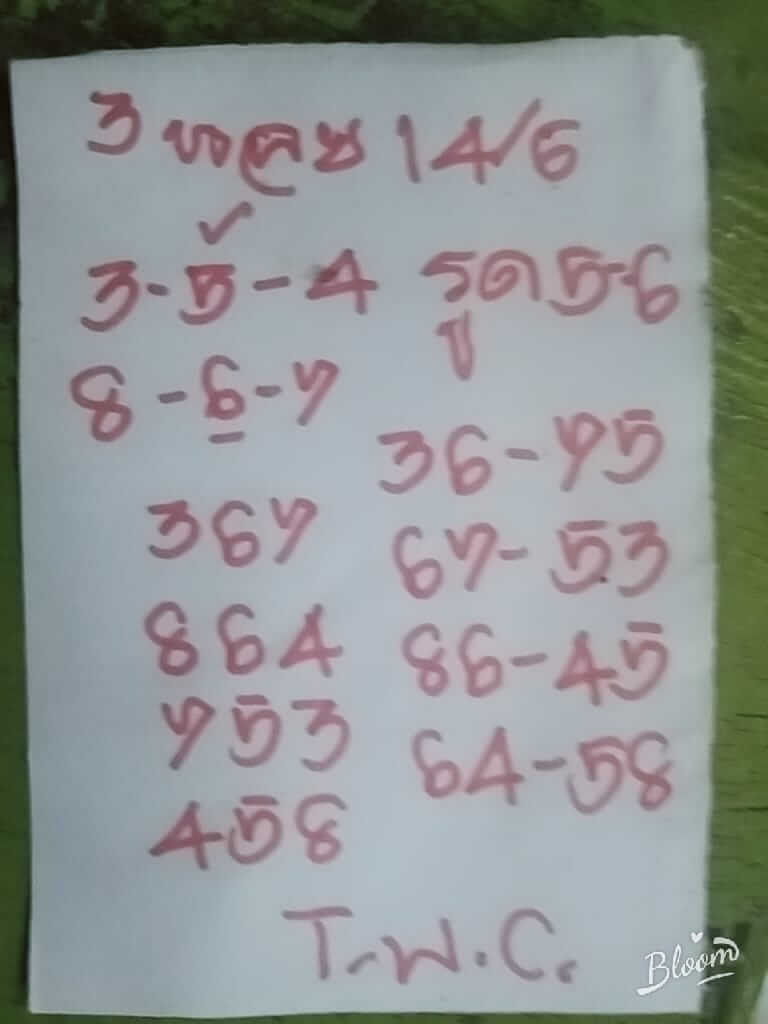 3 ขอลุย 14/6
3-5-4 รูด 5-6
8-6-7 ปู
36-75
367
67-53
864
86-45
753
64-58
458
T.W.C.
Bloom